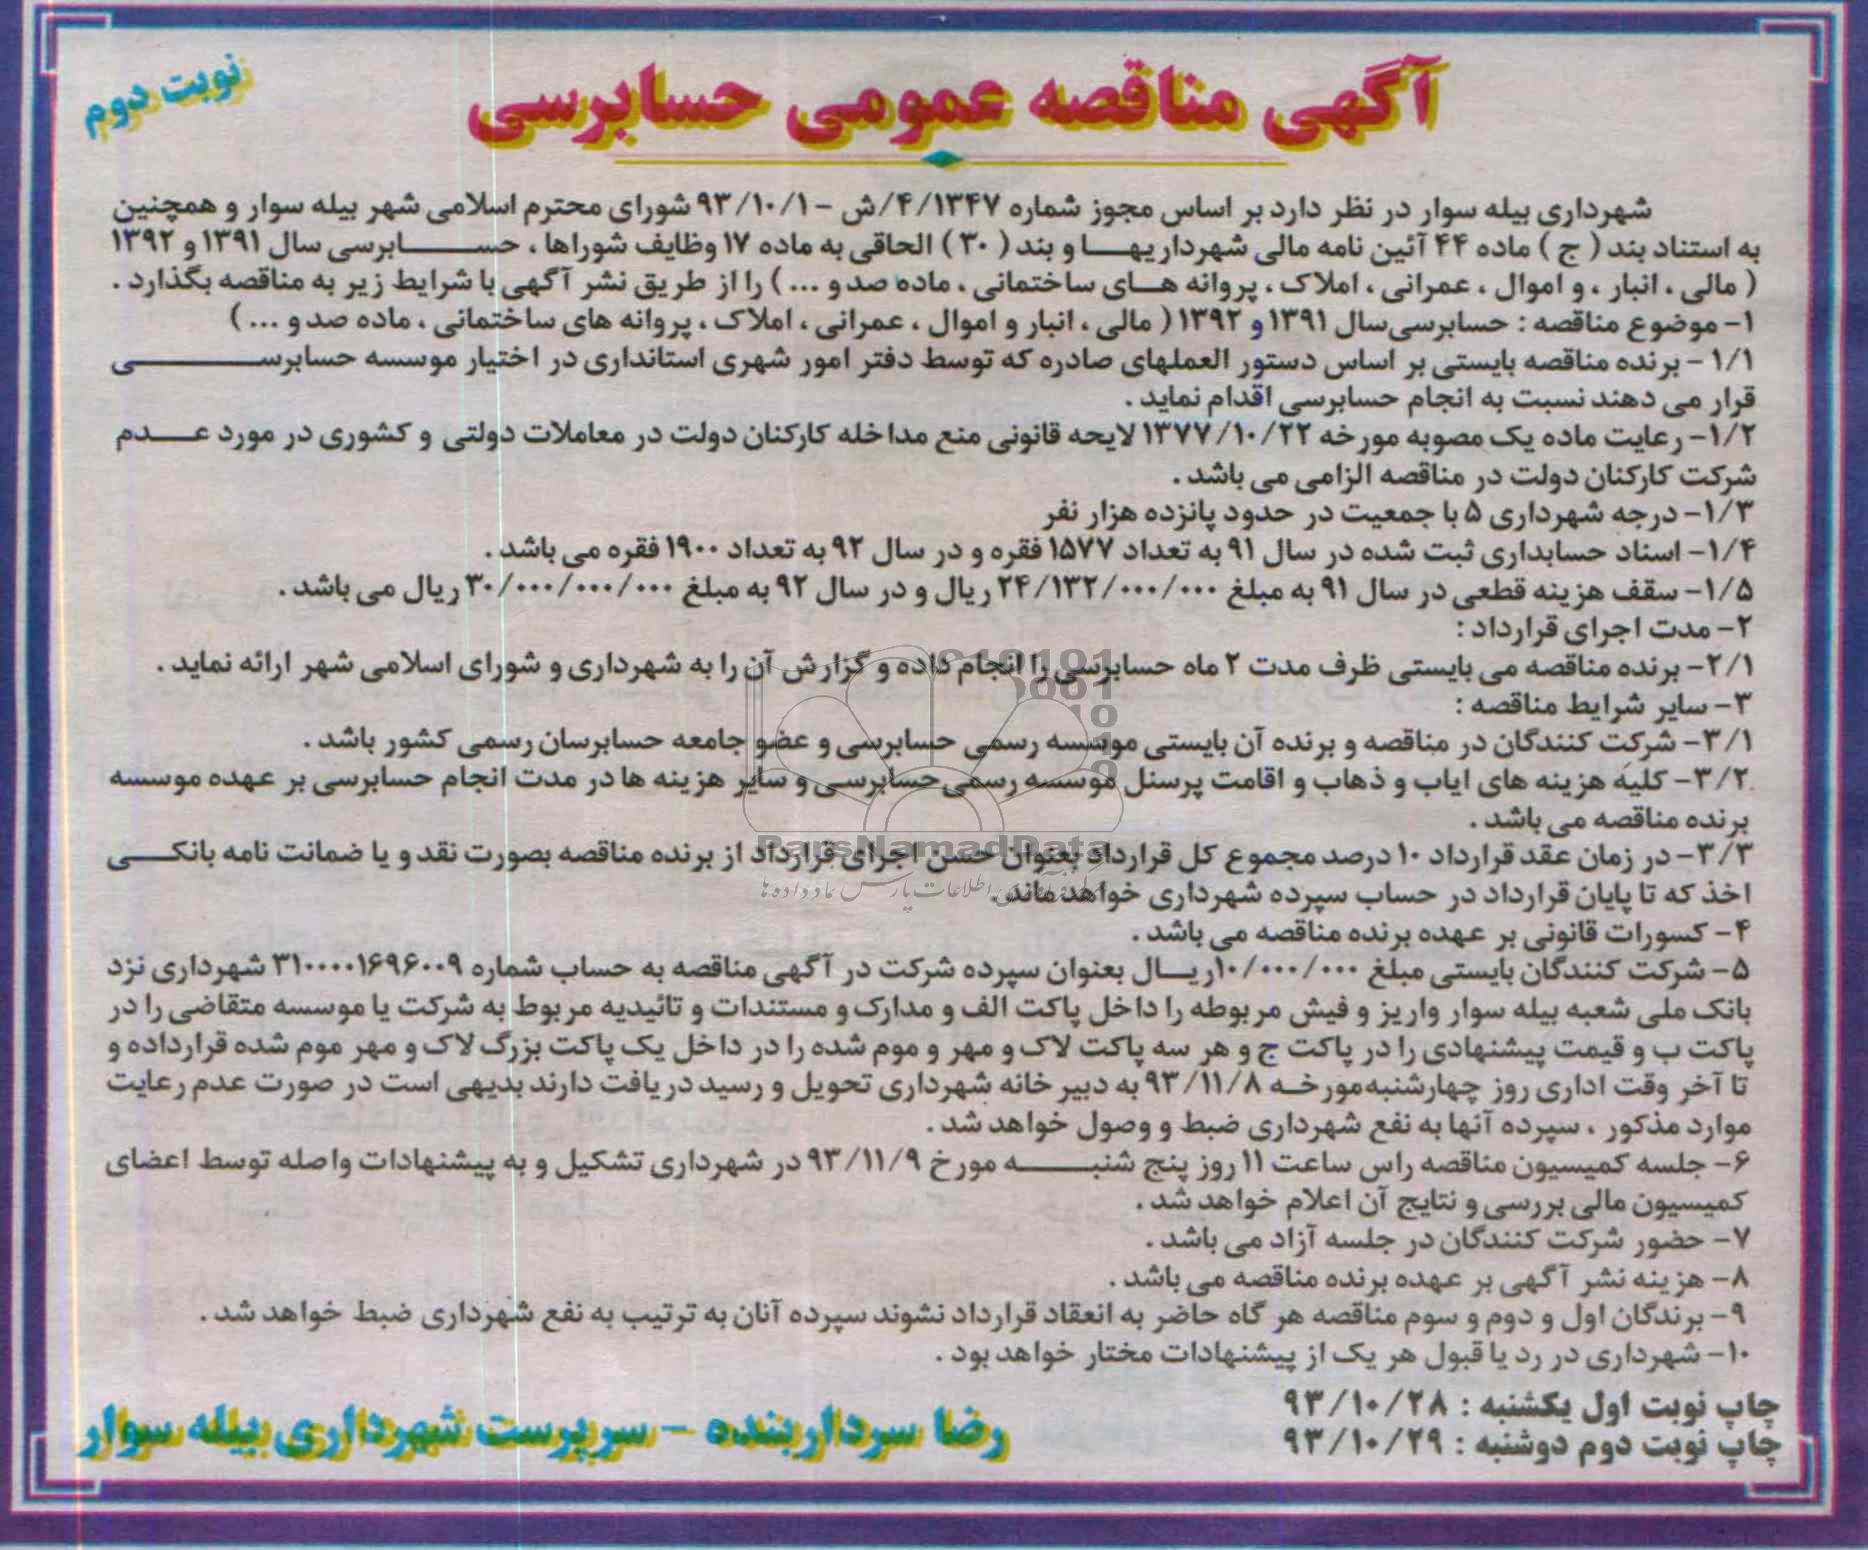 آگهی مناقصه عمومی حسابرسی
نوبت دوم
شهرداری بیله سوار در نظر دارد بر اساس مجوز شماره ۴/۱۳۴۷/ش - ۹۳/۱۰/۱ شورای محترم اسلامی شهر بیله سوار و همچنین
به استناد بند ( ج ) ماده ۴۴ آئین نامه مالی شهرداریهـا و بند ( ۳۰ ) الحاقی به ماده ۱۷ وظایف شوراها ، حسـابرسی سال ۱۳۹۱ و ۱۳۹۲
( مالی ، انبار ، و اموال ، عمرانی ، املاک ، پروانه هـای ساختمانی ، ماده صد و ... ) را از طریق نشر آگهی با شرایط زیر به مناقصه بگذارد .
۱- موضوع مناقصه : حسابرسی سال ۱۳۹۱ و ۱۳۹۲ ( مالی ، انبار و اموال ، عمرانی ، املاک ، پروانه های ساختمانی ، ماده صد و ... )
۱/۱ - برنده مناقصه بایستی بر اساس دستور العملهای صادره که توسط دفتر امور شهری استانداری در اختیار موسسه حسابرسـی
قرار می دهند نسبت به انجام حسابرسی اقدام نماید .
۱/۲- رعایت ماده یک مصوبه مورخه ۱۳۷۷/۱۰/۲۲ لایحه قانونی منع مداخله کارکنان دولت در معاملات دولتی و کشوری در مورد عـدم
شرکت کارکنان دولت در مناقصه الزامی می باشد .
۱/۳- درجه شهرداری ۵ با جمعیت در حدود پانزده هزار نفر
۱/۴- اسناد حسابداری ثبت شده در سال ۹۱ به تعداد ۱۵۷۷ فقره و در سال ۹۲ به تعداد ۱۹۰۰ فقره می باشد .
۱/۵- سقف هزینه قطعی در سال ۹۱ به مبلغ ۲۴/۱۳۲/۰۰۰/۰۰۰ ریال و در سال ۹۲ به مبلغ ۳۰/۰۰۰/۰۰۰/۰۰۰ ریال می باشد .
۲- مدت اجرای قرارداد :
۲/۱- برنده مناقصه می بایستی ظرف مدت ۲ ماه حسابرسی را انجام داده و گزارش آن را به شهرداری و شورای اسلامی شهر ارائه نماید .
۳- سایر شرایط مناقصه :
۳/۱- شرکت کنندگان در مناقصه و برنده آن بایستی موسسه رسمی حسابرسی و عضو جامعه حسابرسان رسمی کشور باشد .
۳/۲- کلیه هزینه های ایاب و ذهاب و اقامت پرسنل موسسه رسمی حسابرسی و سایر هزینه ها در مدت انجام حسابرسی بر عهده موسسه
برنده مناقصه می باشد .
۳/۳- در زمان عقد قرارداد ۱۰ درصد مجموع کل قرارداد بعنوان حسن اجرای قرارداد از برنده مناقصه بصورت نقد و یا ضمانت نامه بانکـی
ParsNamadData
اخذ که تا پایان قرارداد در حساب سپرده شهرداری خواهد ماند .
۴- کسورات قانونی بر عهده برنده مناقصه می باشد .
۵- شرکت کنندگان بایستی مبلغ ۱۰/۰۰۰/۰۰۰ ریـال بعنوان سپرده شرکت در آگهی مناقصه به حساب شماره ۳۱۰۰۰۰۱۶۹۶۰۰۹ شهرداری نزد
بانک ملی شعبه بیله سوار واریز و فیش مربوطه را داخل پاکت الف و مدارک و مستندات و تائیدیه مربوط به شرکت یا موسسه متقاضی را در
پاکت ب و قیمت پیشنهادی را در پاکت ج و هر سه پاکت لاک و مهر و موم شده را در داخل یک پاکت بزرگ لاک و مهر موم شده قرارداده و
تا آخر وقت اداری روز چهارشنبه مورخـه ۹۳/۱۱/۸ به دبیر خانه شهرداری تحویل و رسید دریافت دارند بدیهی است در صورت عدم رعایت
موارد مذکور ، سپرده آنها به نفع شهرداری ضبط و وصول خواهد شد .
۶- جلسه کمیسیون مناقصه راس ساعت ۱۱ روز پنج شنبـه مورخ ۹۳/۱۱/۹ در شهرداری تشکیل و به پیشنهادات واصله توسط اعضای
کمیسیون مالی بررسی و نتایج آن اعلام خواهد شد .
۷- حضور شرکت کنندگان در جلسه آزاد می باشد .
۸- هزینه نشر آگهی بر عهده برنده مناقصه می باشد .
۹- برندگان اول و دوم و سوم مناقصه هر گاه حاضر به انعقاد قرارداد نشوند سپرده آنان به ترتیب به نفع شهرداری ضبط خواهد شد .
۱۰- شهرداری در رد یا قبول هر یک از پیشنهادات مختار خواهد بود .
چاپ نوبت اول یکشنبه : ۹۳/۱۰/۲۸
چاپ نوبت دوم دوشنبه : ۹۳/۱۰/۲۹
رضا سرداربنده - سرپرست شهرداری بیله سوار